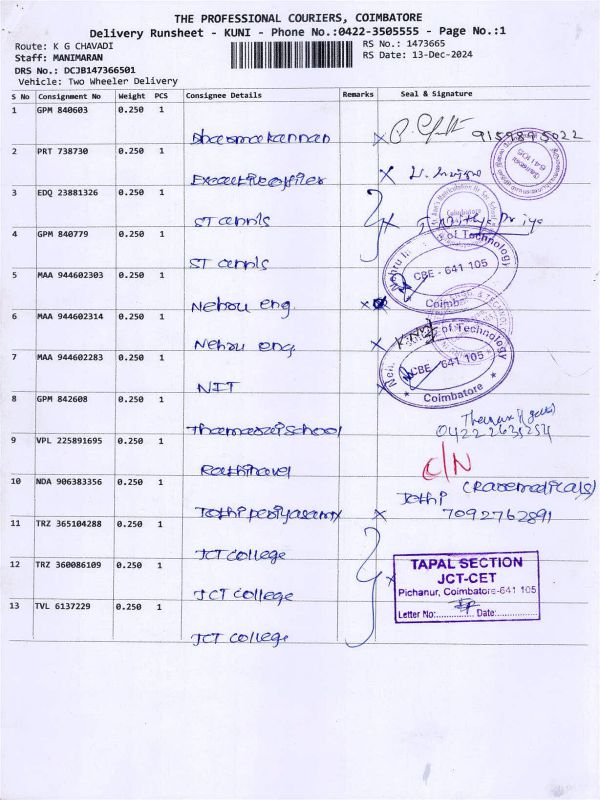 THE PROFESSIONAL COURIERS, COIMBATORE
Delivery Runsheet - KUNI - Phone No.:0422-3505555 - Page No.:1
Route: K G CHAVADI
RS No.: 1473665
Staff: MANIMARAN
RS Date: 13-Dec-2024
DRS No.: DCJB147366501
Vehicle: Two Wheeler Delivery
S No Consignment No Weight PCS Consignee Details Remarks Seal & Signature
1 GPM 840603 0.250 1
Dharmakannan x 9159895022
2 PRT 738730 0.250 1
Executive officer x
3 EDQ 23881326 0.250 1
ST annls x
4 GPM 840779 0.250 1
ST annls
of Technology
CBE - 641 105
Coimb
5 MAA 944602303 0.250 1
Nehru eng. x
6 MAA 944602314 0.250 1
Nehru eng. x
of Technology
CBE - 641 105
Coimbatore
7 MAA 944602283 0.250 1
NIT x
8 GPM 842608 0.250 1
Thamarai school
9 VPL 225891695 0.250 1
C/N
Rathinavel
10 NDA 906383356 0.250 1
Jothi
Jothi periyasamy x 7092762891
11 TRZ 365104288 0.250 1
JCT college
12 TRZ 360086109 0.250 1
JCT college x
TAPAL SECTION
JCT-CET
Pichanur, Coimbatore-641 105
Letter No:.............. Date:..............
13 TVL 6137229 0.250 1
JCT college